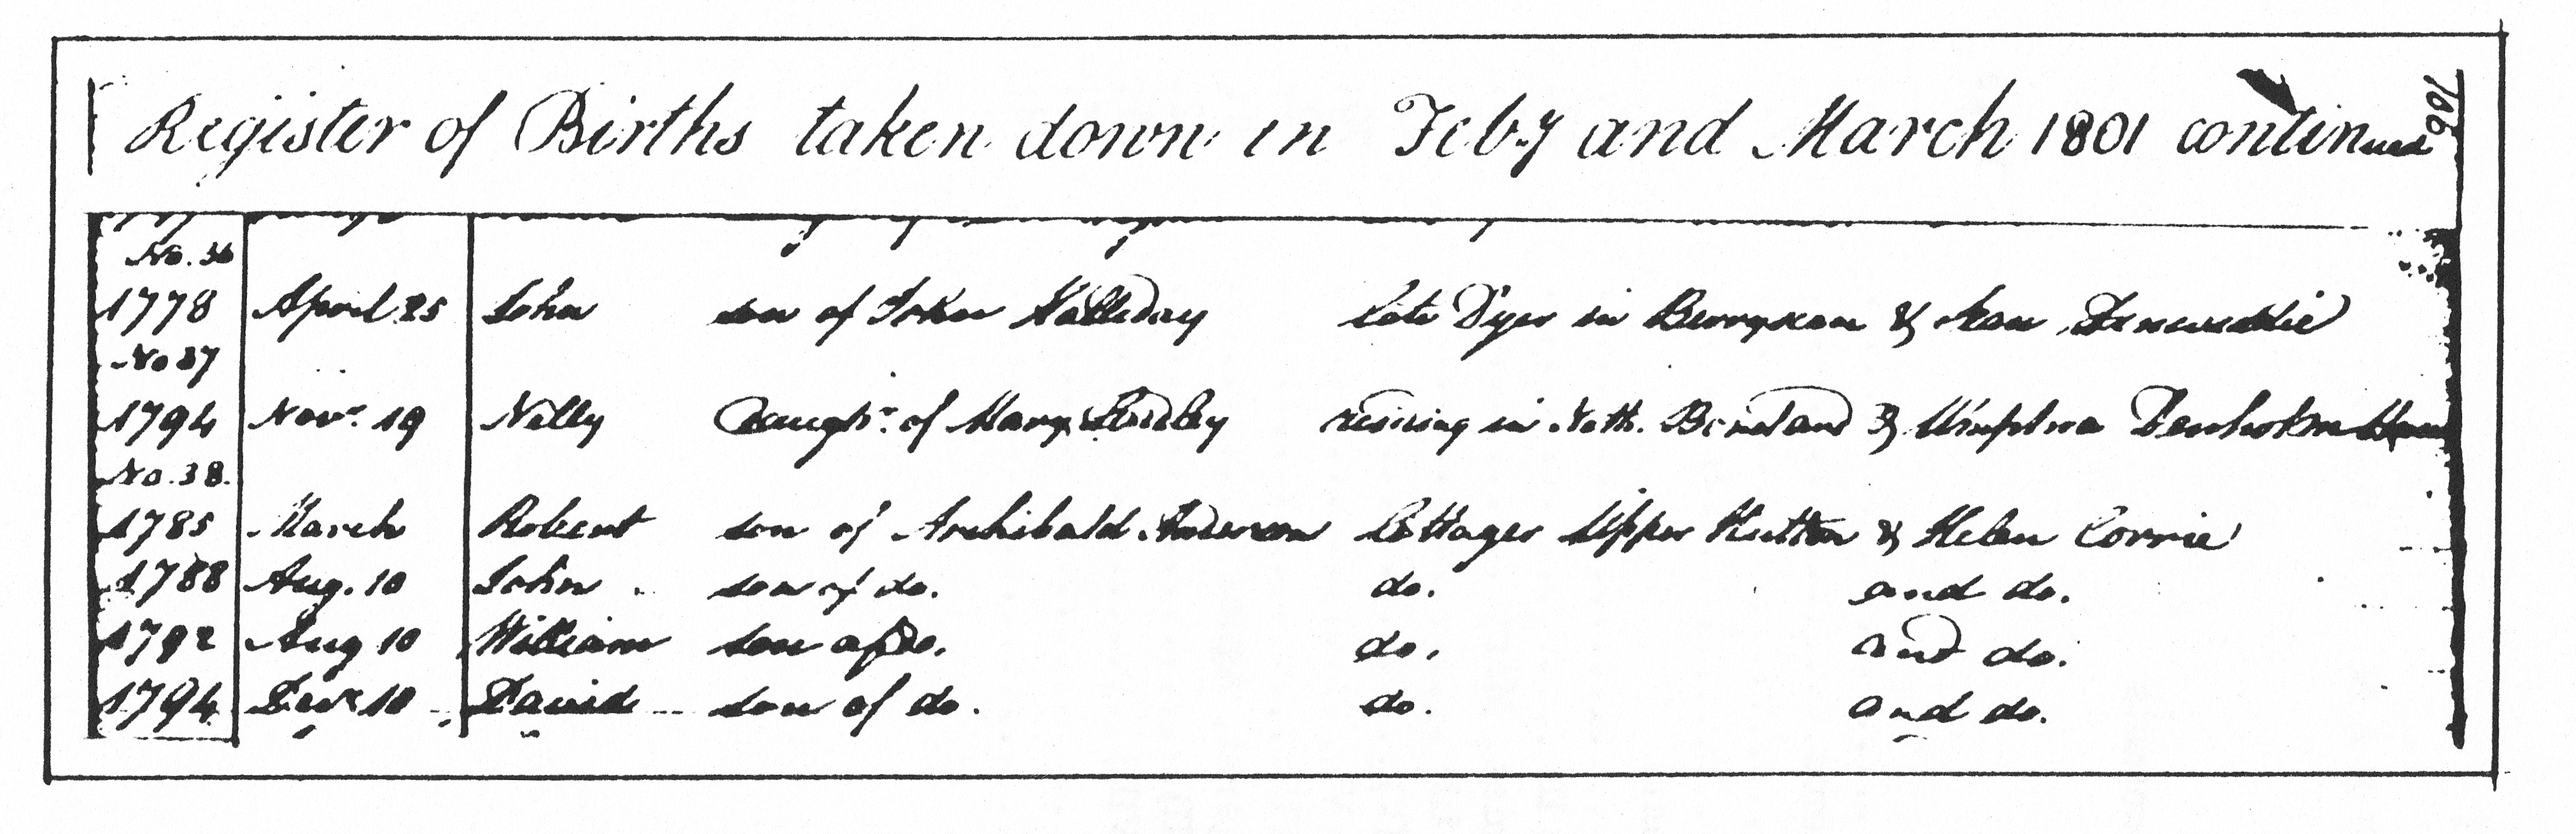 Register of Births taken down in Feby and March 1801 continued
106
No. 36
1778 April 25 John son of John Halliday late Dyer in & Jean
No 37
1794 Novr. 19 Nelly Daughr. of Mary residing in Noth. & Denholm
No. 38.
1785 March Robert son of Archibald Anderson Cottager Upper Hutton & Helen Corrie
1788 Aug. 10 John son of do. do. and do.
1792 Aug 10 William son of Do. do. and do.
1794 Decr 10 David son of do. do. and do.